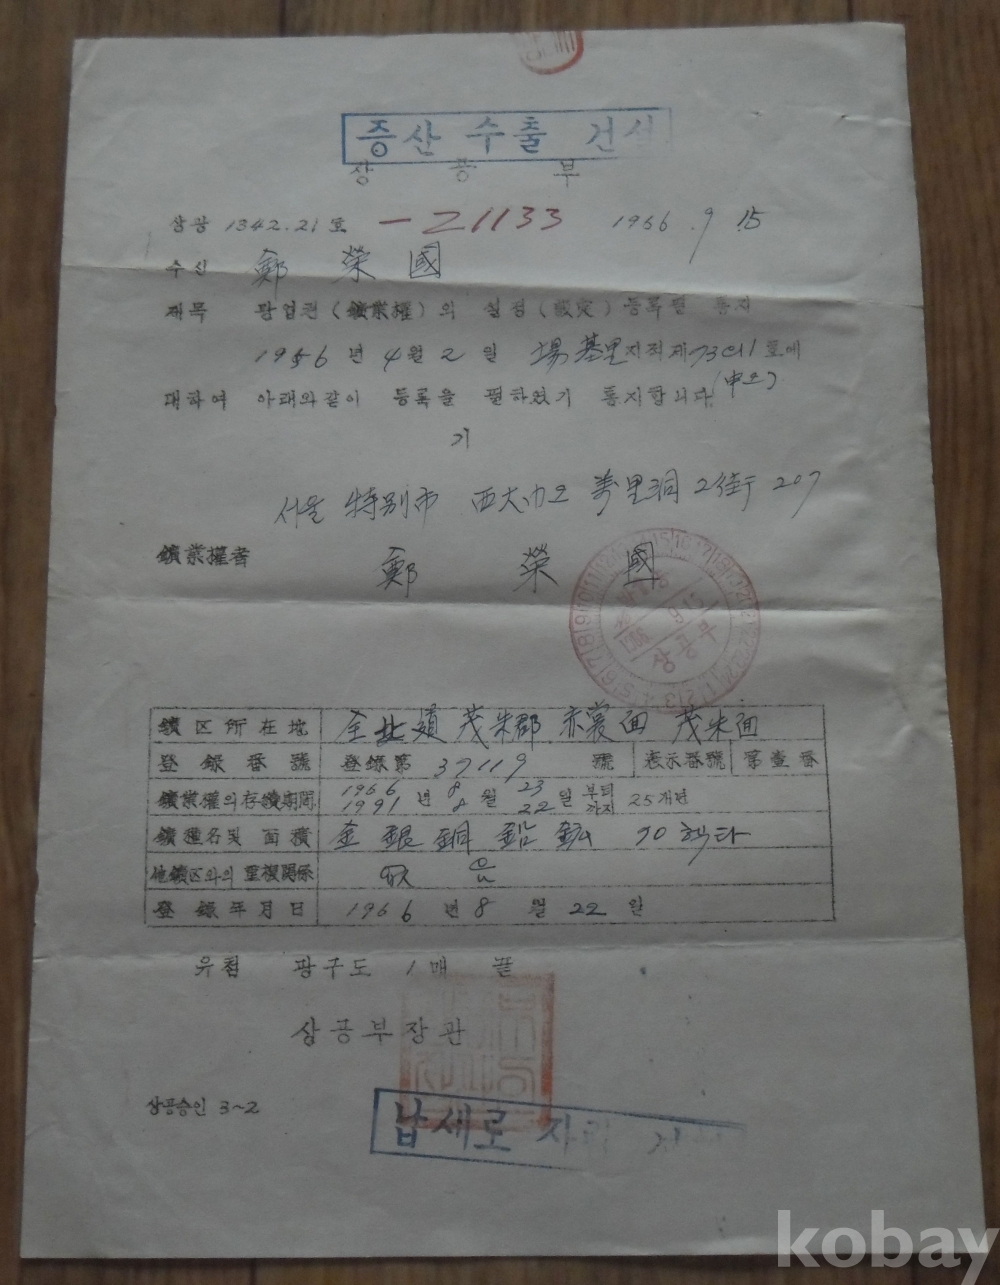 증산 수출 건설
상공부
상광 1342.21호 -21133 1966. 9. 15
수신 鄭榮國
제목 광업권(鑛業權)의 설정(設定)등록필 통지
1966년 4월 2일 場基里지적제73의1호에
대하여 아래와같이 등록을 필하였기 통지합니다.
기
서울 特別市 西大門區 萬里洞 2街 207
鑛業權者 鄭榮國
상공부
鑛区所在地 全北 茂朱郡 赤裳面 茂朱面
登錄番號 登録第 37119 號 表示番號 第壹番
鑛業權의存續期間 1966년 8월 23일부터 1991년 8월 22일까지 25개년
鑛種名및 面積 金 銀 銅 鉛 鉱 70헥타
他鑛区와의 重複関係 없음
登錄年月日 1966년 8월 22일
유첨 광구도 1매 끝
상공부장관
상공승인 3~2
납세로 자립
kobay